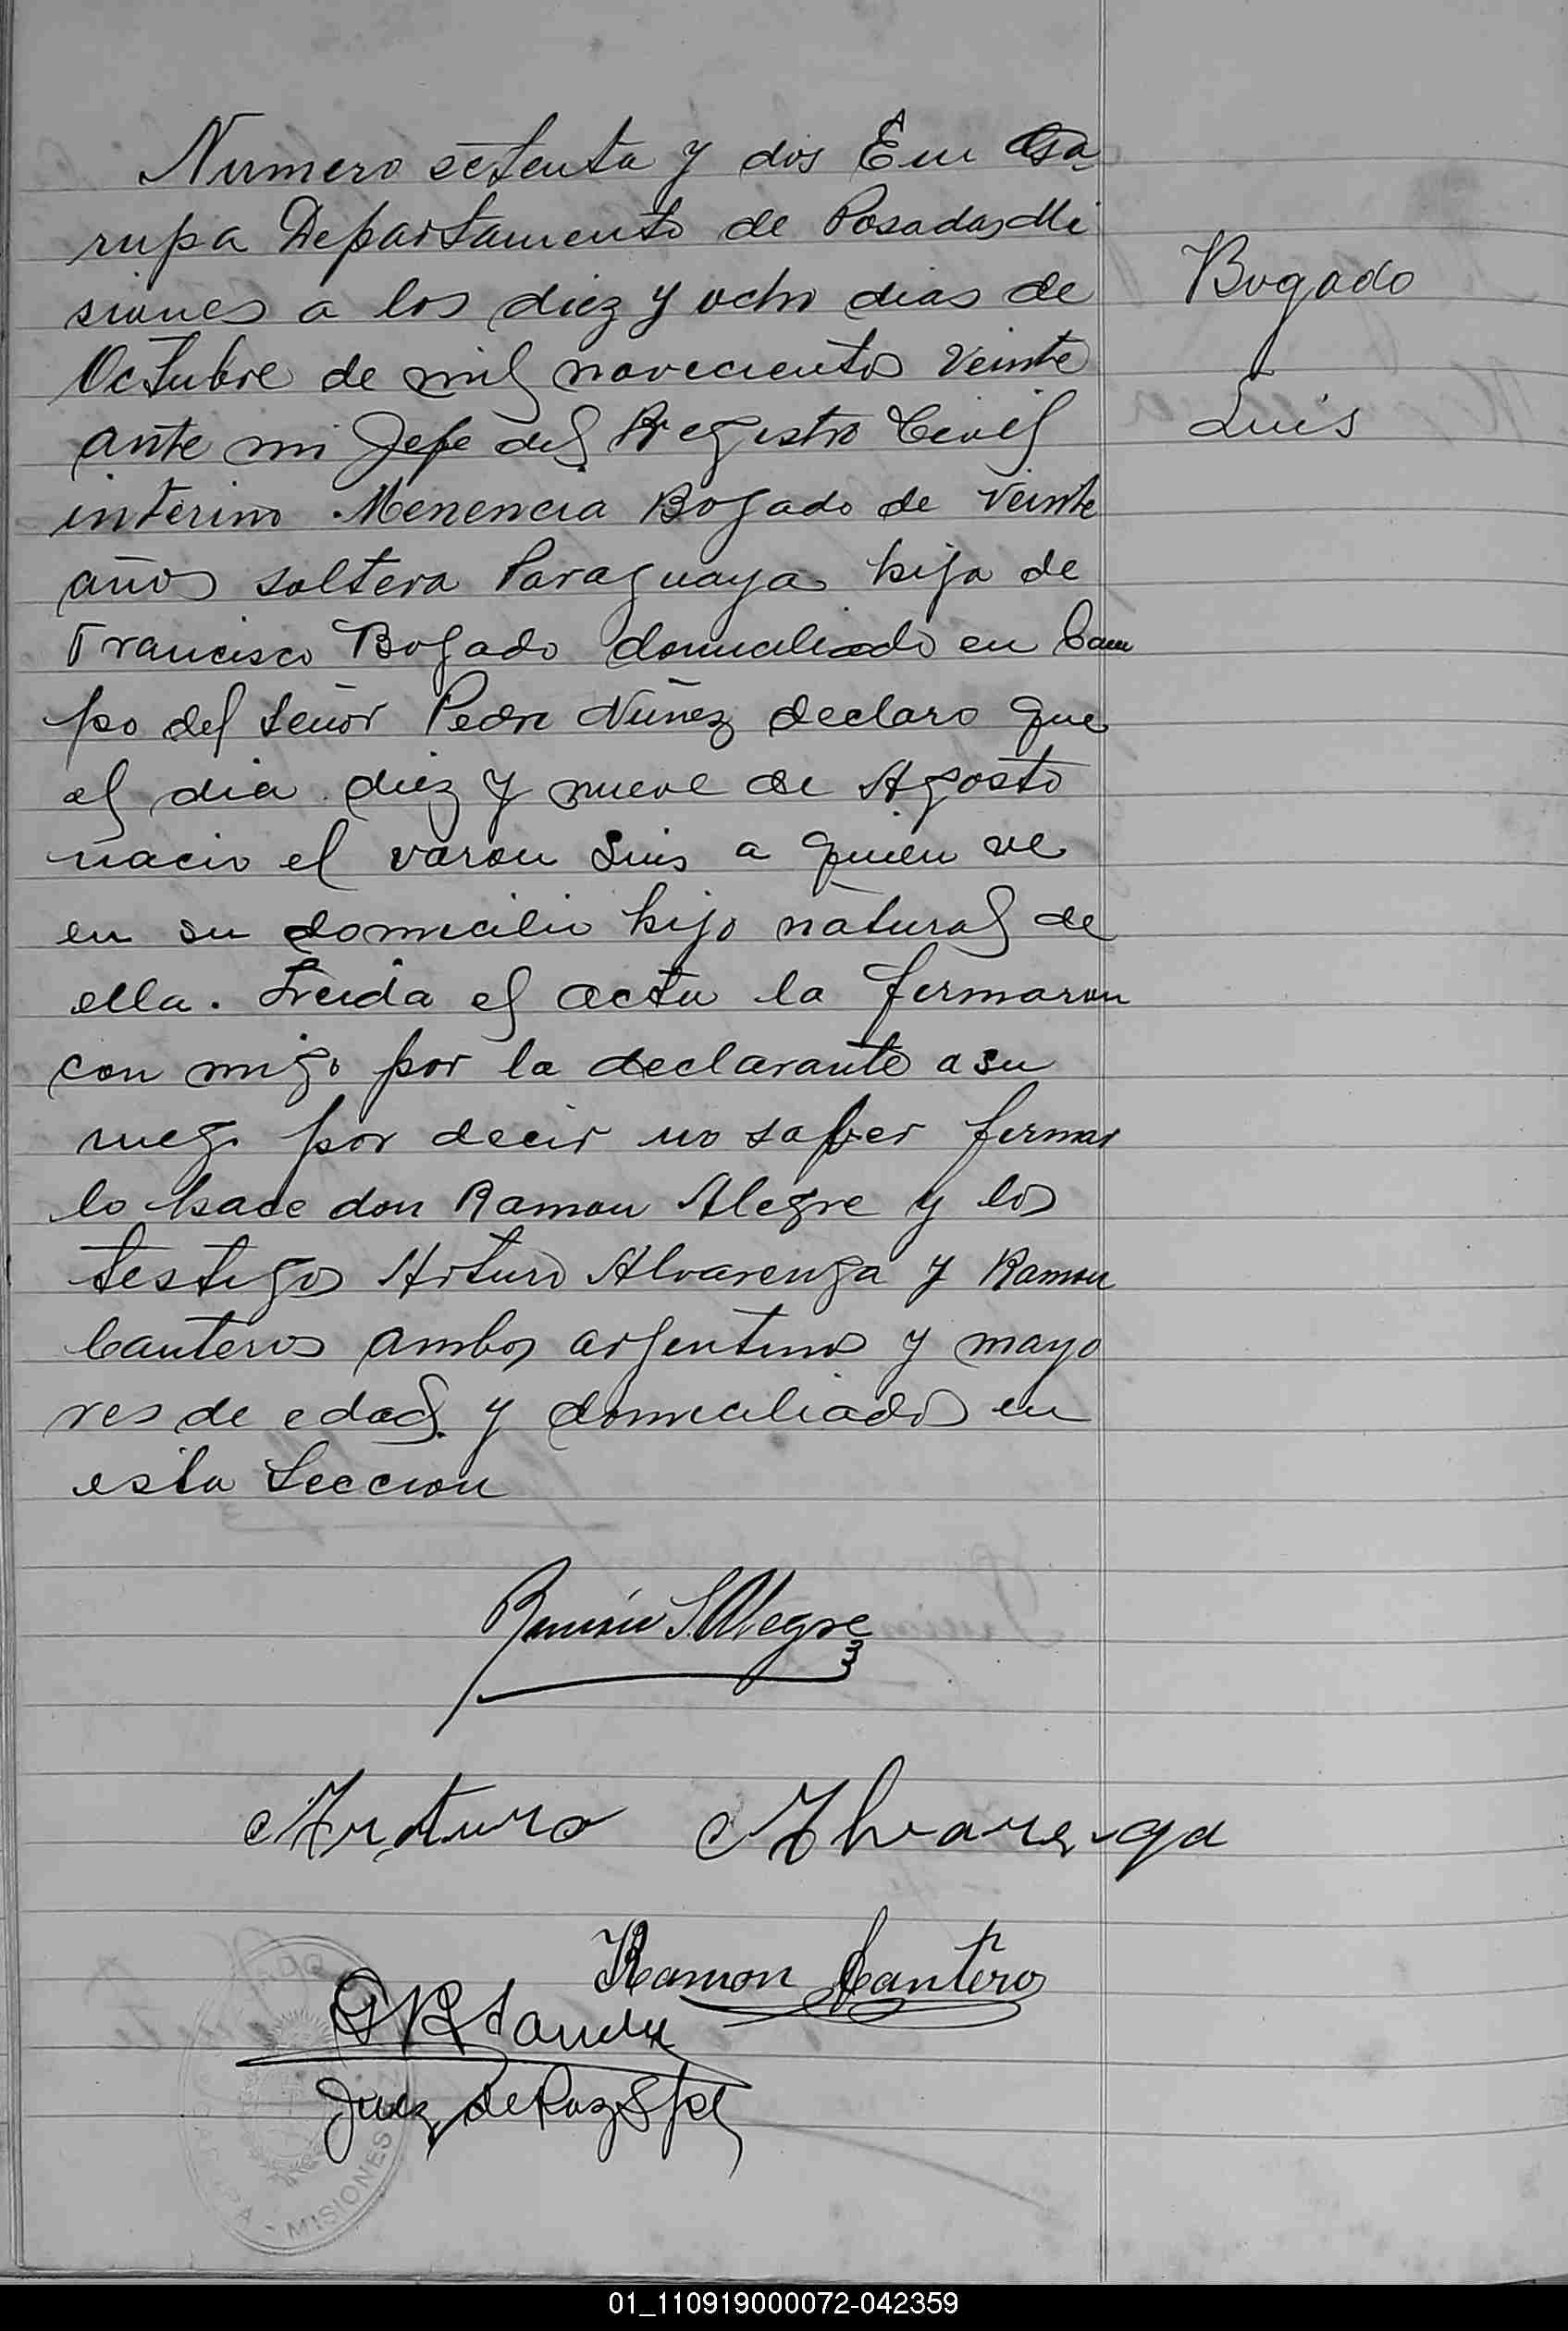 Numero setenta y dos En Ga-
rupa Departamento de Posadas Mi
siones a los diez y ocho dias de
Octubre de mil novecientos veinte
ante mi Jefe del Registro Civil
interino Menencia Bogado de veinte
años soltera Paraguaya hija de
Francisco Bogado domiciliado en Cam
po del Señor Pedro Núñez declaro que
el dia diez y nueve de Agosto
nacio el varon Luis a quien ve
en su domicilio hijo natural de
ella. Leida el acta la firmaron
con migo por la declarante a su
ruego por decir no saber firmar
lo hace don Ramon Alegre y los
testigos Arturo Alvarenga y Ramon
Canteros ambos argentinos y mayo
res de edad y domiciliados en
esta Seccion
Bogado
Luis
Ramón S. Alegre
Arturo Alvarenga
Ramon Cantero
Juez de Paz Spl
MISIONES
01_110919000072-042359